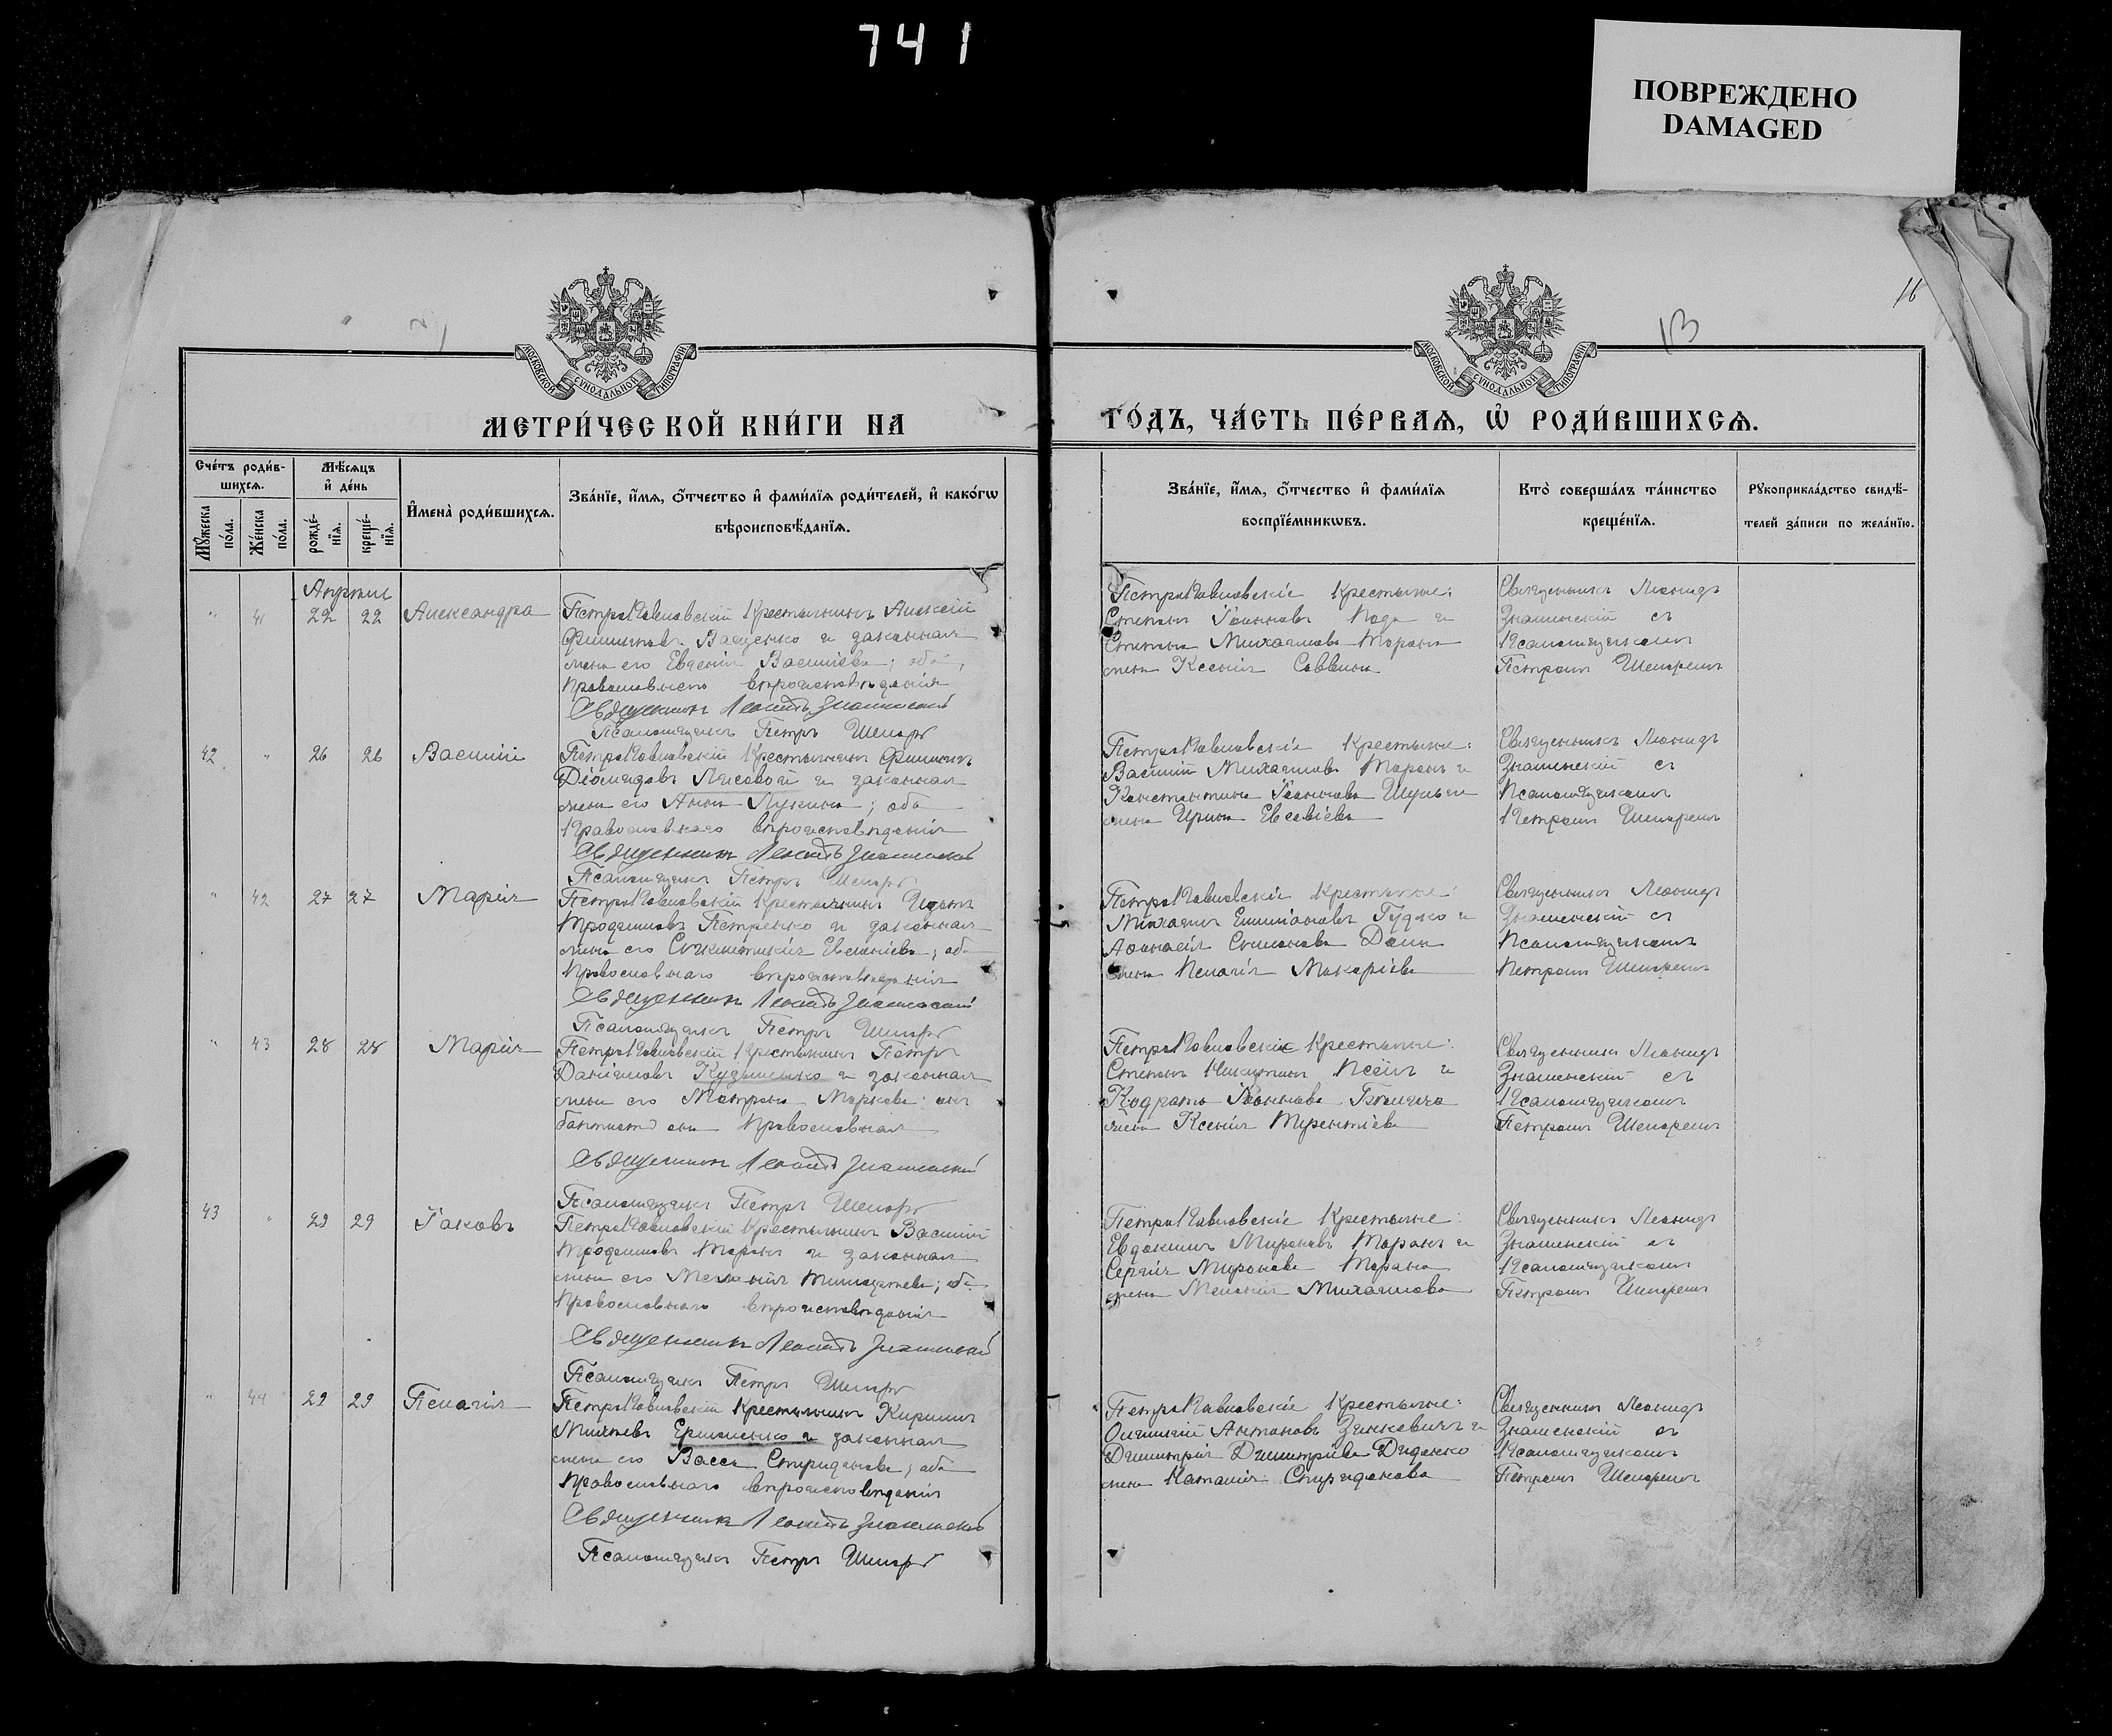 741
ПОВРЕЖДЕНО
DAMAGED
16
13
МОСКОВСКОЙ СѴНОДАЛЬНОЙ ТИПОГРАФІИ
МОСКОВСКОЙ СѴНОДАЛЬНОЙ ТИПОГРАФІИ
МЕТРИ́ЧЕСКОЙ КНИ́ГИ НА
ГО́ДЪ, ЧА́СТЬ ПЕ́РВАѦ, Ѡ҆ РОДИ́ВШИХСѦ.
Сче́тъ роди́в-
шихсѧ.
Мѣ́сѧцъ
и҆ де́нь
Мꙋ́жеска
по́ла.
Же́нска
по́ла.
рожде́-
нїѧ.
креще́-
нїѧ.
И҆мена̀ роди́вшихсѧ.
Зва́нїе, и҆́мѧ, ѻ҆́тчество и҆ фами́лїѧ роди́телей, и҆ како́гѡ
вѣроисповѣ́данїѧ.
Зва́нїе, и҆́мѧ, ѻ҆́тчество и҆ фами́лїѧ
воспрїе́мникѡвъ.
Кто̀ соверша́лъ та́инство
креще́нїѧ.
Рꙋкоприкла́дство свидѣ́-
телей за́писи по жела́нїю.
Апрѣль
" 41 22 22 Александра
Петропавловскій крестьянинъ Алексій
Филиповъ Ващенко и законная
жена его Евгенія Васильева; оба
православнаго вѣроисповѣданія
Священникъ Леонидъ Знаменскій
Псаломщикъ Петръ Шепарь
Петропавловскіе крестьяне:
Степанъ Іоанновъ и
Степана Михаилова Моранъ
жена Ксенія Саввина
Священникъ Леонидъ
Знаменскій съ
Псаломщикомъ
Петромъ Шепаремъ
42 " 26 26 Василій
Петропавловскій крестьянинъ Филиппъ
Діомидовъ Лисовой и законная
жена его Анна Лукина; оба
Православнаго вѣроисповѣданія
Священникъ Леонидъ Знаменскій
Псаломщикъ Петръ Шепарь
Петропавловскіе крестьяне:
Василій Михаиловъ Моранъ и
Константина Іоаннова Шульги
жена Ирина Евсевіева
Священникъ Леонидъ
Знаменскій съ
Псаломщикомъ
Петромъ Шепаремъ
" 42 27 27 Марія
Петропавловскій крестьянинъ Игнатъ
Трофимовъ Петренко и законная
жена его Синклитикія; оба
Православнаго вѣроисповѣданія
Священникъ Леонидъ Знаменскій
Псаломщикъ Петръ Шепарь
Петропавловскіе крестьяне:
Михаилъ Емиліановъ Гудко и
Афанасія Симонова
жена Пелагія Макаріева
Священникъ Леонидъ
Знаменскій съ
Псаломщикомъ
Петромъ Шепаремъ
" 43 28 28 Марія
Петропавловскій крестьянинъ Петръ
Даніиловъ Кузьменко и законная
жена его Матрона Маркова: онъ
баптистъ она Православная
Священникъ Леонидъ Знаменскій
Псаломщикъ Петръ Шепарь
Петропавловскіе крестьяне:
Степанъ Никитинъ и
Кодрата Іоаннова
жена Ксенія Терентіева
Священникъ Леонидъ
Знаменскій съ
Псаломщикомъ
Петромъ Шепаремъ
43 " 29 29 Іаковъ
Петропавловскій крестьянинъ Василій
Трофимовъ Моранъ и законная
жена его Меланія Тимофеева; оба
Православнаго вѣроисповѣданія
Священникъ Леонидъ Знаменскій
Псаломщикъ Петръ Шепарь
Петропавловскіе крестьяне:
Евдокимъ Мироновъ Моранъ и
Сергія Миронова Морана
жена Меланія Михаилова
Священникъ Леонидъ
Знаменскій съ
Псаломщикомъ
Петромъ Шепаремъ
" 44 29 29 Пелагія
Петропавловскій крестьянинъ Кириллъ
Ермоленко и законная
жена его Васса Спиридонова; оба
Православнаго вѣроисповѣданія
Священникъ Леонидъ Знаменскій
Псаломщикъ Петръ Шепарь
Петропавловскіе крестьяне:
Антоновъ Зинкевичъ и
Димитрія Димитріева Диденко
жена Наталія Спиридонова
Священникъ Леонидъ
Знаменскій съ
Псаломщикомъ
Петромъ Шепаремъ